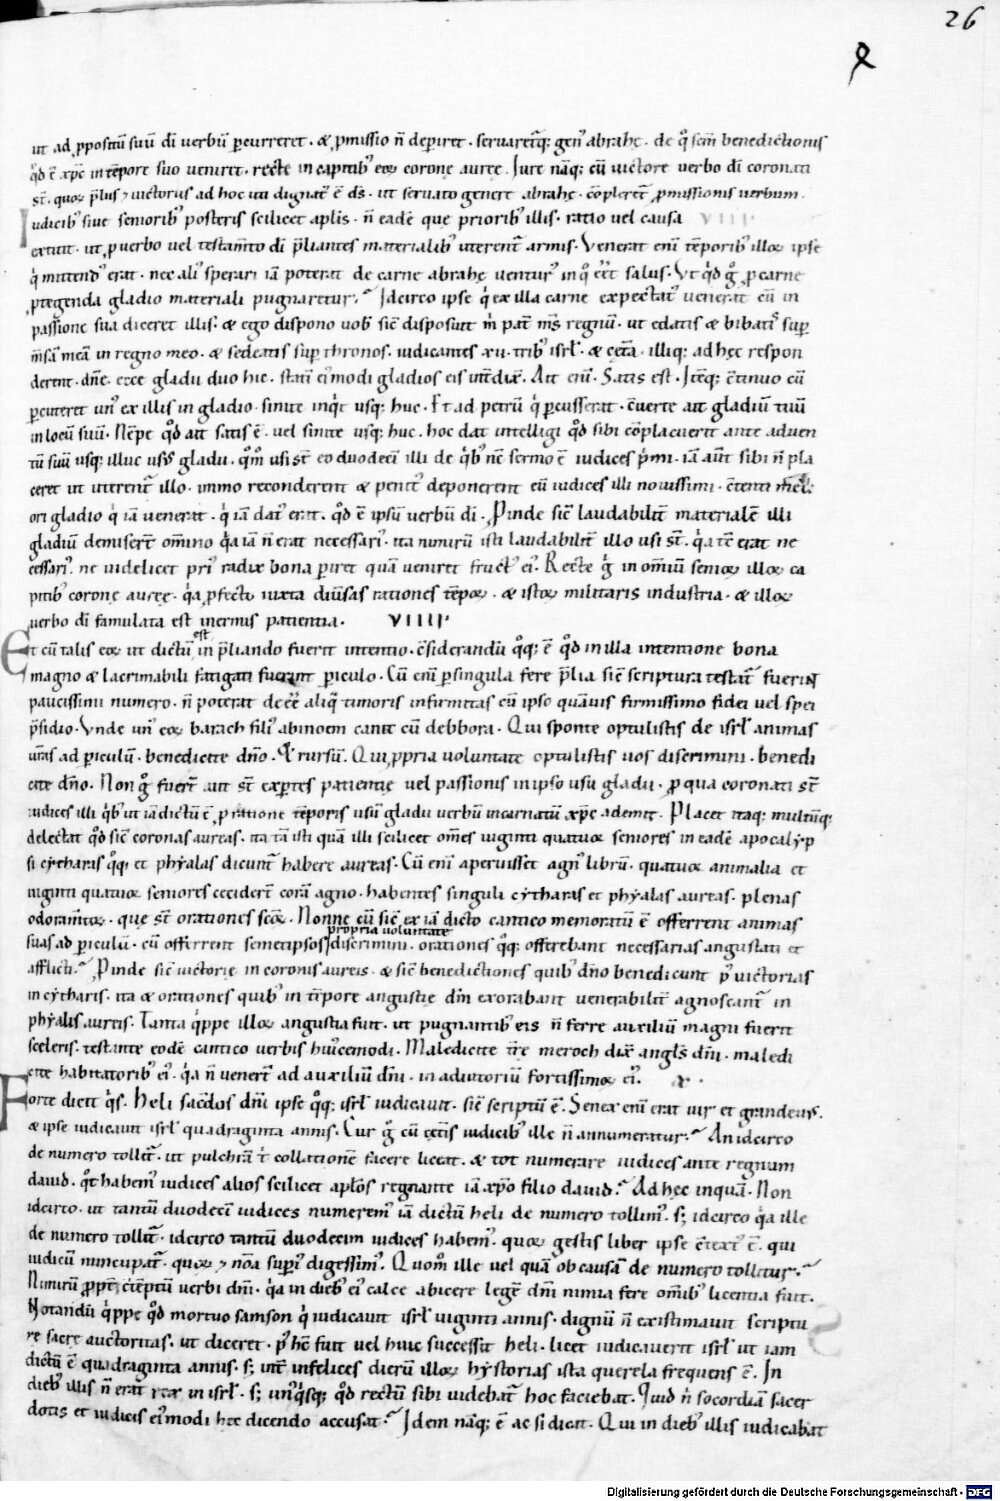 26
ut ad ꝓpositū suū dī verbū ꝑcurreret · & ꝓmissio n̄ deperiret · servaretq; gen᾽ abrahę · de q̊ sem̄ benedictionis
q̊d ē xp̄c in tēpore suo veniret · recte in capitib᾽ eoꝝ coronę aureę · Iure nāq; cū victore verbo dī coronati
st̄ · quoꝝ p̄lus ⁊ victoriis ad hoc uti dignat᾽ ē ds̄ · ut servato genere abrahę · cōpleret᾽ ꝓmissionis verbum ·
Iudicib᾽ sive seniorib᾽ posteris scilicet aplis · n̄ eadē que priorib᾽ illis · ratio vel causa VIII ·
extitit · ut ꝓ verbo vel testam̄to dī p̄liantes materialib᾽ uterent᾽ armis · Venerat enī tēporib᾽ illoꝝ ipse
q̇ mittend᾽ erat · nec ali᾽ sperari iā poterat de carne abrahę ventur᾽ in q̊ eēt salus · Ut q̇d g̊ ꝓ carne
ꝓtegenda gladio materiali pugnaretur? Idcirco ipse q̇ ex illa carne expectat᾽ venerat cū in
passione sua diceret illis · & ego dispono vob᾽ sic̄ disposuit m̄ pat᾽ m̄s regnū · ut edatis & bibatis sup̄
m̄sā meā in regno meo · & sedeatis sup̄ thronos · iudicantes xii · trib᾽ isrl̄ · & cet̄a · illiq; ad hęc respon
derent · dn̄e · ecce gladii duo hic · statī ei᾽modi gladios eis int̄dix̄ · Ait enī · Satis est · Itēq; c̄tinuo cū
ꝑcuteret un᾽ ex illis in gladio · sinite inq̇t usq; huc · Et ad petrū q̇ ꝑcusserat · c̄verte ait gladiū tuū
in locū suū · Nēpe q̊d ait satis ē · vel sinite usq; huc · hoc dat intelligi q̊d sibi cōplacuerit ante adven
tū suū usq; illuc us᾽ gladii · q̊m̄ usi st̄ eo duodecī illi de q̇b᾽ nc̄ sermo ē iudices ṗmi · iā aūt sibi n̄ pla
ceret ut uterent᾽ illo · immo reconderent & penit᾽ deponerent eū iudices illi novissimi · c̄tenti meli
ori gladio q̇ iā venerat · q̇ iā dat᾽ erat · q̊d ē ipsū verbū dī · Ꝓinde sic̄ laudabilit᾽ materialē illi
gladiū demiser̄t om̄ino q̇a iā n̄ erat necessari᾽ · ita nimirū isti laudabilit᾽ illo usi st̄ · q̇a tc̄ erat ne
cessari᾽ · ne videlicet pri᾽ radix bona ꝑiret quā veniret fruct᾽ ei᾽ · Recte g̊ in om̄iū senioꝝ illoꝝ ca
pitib᾽ coronę aureę · q̇a ꝓfecto iuxta div̄sas rationes tēpoꝝ · & istoꝝ militaris industria · & illoꝝ
verbo dī famulata est inermis patientia · VIIII ·
Et cū talis eoꝝ ut dictū est in p̄liando fuerit intentio · c̄siderandū q̊q; ē q̊d in illa intentione bona
magno & lacrimabili fatigati fuerint ꝑiculo · Cū enī ꝑ singula fere p̄lia sic̄ scriptura testat᾽ fuerint
paucissimi numero · n̄ poterat deeē aliq̄ timoris infirmitas cū ipso quāvis firmissimo fidei vel spei
p̄sidio · Unde un᾽ eoꝝ barach fili᾽ abinoem canit cū debbora · Qui sponte optulistis de isrl̄ animas
vr̄as ad ꝑiculū · benedicite dn̄o · Et rursū · Qui ꝓpria voluntate optulistis vos discrimini · benedi
cite dn̄o · Non g̊ fuer̄t aut st̄ exꝑtes patientię vel passionis in ipso usu gladii · ꝓ qua coronati st̄
iudices illi q̇b᾽ ut iā dictū ē · ꝓ ratione tēporis usū gladii verbū incarnatū xp̄c ademit · Placet itaq; multūq;
delectat q̊d sic̄ coronas aureas · ita tā isti quā illi scilicet om̄es viginti quatuor seniores in eadē apocalyp
si cytharis q̊q; et phyalas dicunt᾽ habere aureas · Cū enī apervisset agn᾽ librū · quatuor animalia et
viginti quatuor seniores cecider̄t corā agno · habentes singuli cytharas et phyalas aureas · plenas
odoram̄toꝝ · que st̄ orationes sc̄oꝝ · Nonne cū sic̄ ex iā dicto cantico memoratū ē offerrent animas
suas ad ꝑiculū · cū offerrent semetipsos propria voluntate discrimini · orationes q̊q; offerebant necessarias angustiati et
afflicti? Ꝓinde sic̄ victorię in coronis aureis · & sic̄ benedictiones quib᾽ dn̄o benedicunt ꝓ victorias
in cytharis · ita & orationes quib᾽ in tēpore angustię dn̄m exorabant venerabilit᾽ agnoscant᾽ in
phyalis aureis · Tanta q̇ppe illoꝝ angustia fuit · ut pugnantib᾽ eis n̄ ferre auxiliū magni fuerit
sceleris · testante eodē cantico verbis hui᾽cemodi · Maledicite tr̄e meroch dix̄ angl᾽s dn̄i · maledi
cite habitatorib᾽ ei᾽ · q̇a n̄ vener̄t ad auxiliū dn̄i · in adiutoriū fortissimoꝝ ei᾽ · X ·
Forte dicit q̇s · Heli sac̄dos dn̄i ipse q̊q; isrl̄ iudicavit · sic̄ scriptū ē · Senex enī erat vir et grandevus ·
& ipse iudicavit isrl̄ quadraginta annis · Cur g̊ cū cęt̄is iudicib᾽ ille n̄ annumeratur? An idcirco
de numero tollit᾽ · ut pulchrā t̄ collationē facere liceat · & tot numerare iudices ante regnum
david · q̊t habem᾽ iudices alios scilicet apl̄os regnante iā xp̄o filio david? Ad hęc inquā · Non
idcirco · ut tantū duodecī iudices numerem᾽ iā dictū heli de numero tollim᾽ · s; idcirco q̇a ille
de numero tollit᾽ · idcirco tantū duodecim iudices habem᾽ · quoꝝ gestis liber ipse c̄text᾽ ē · qui
iudicū nuncupat᾽ · quoꝝ ⁊ nōa sup̄i᾽ digessim᾽ · Quom̄ ille vel quā ob causā de numero tollitur?
Nimirū ꝓpt᾽ c̄tēptū verbi dn̄i · q̇a in dieb᾽ ei᾽ calce abicere legē dn̄i nimia fere om̄ib᾽ licentia fuit ·
Notandū q̇ppe q̊d mortuo samson q̇ iudicavit isrl̄ viginti annis · dignū n̄ existimavit scriptu
re sacre auctoritas · ut diceret · p᾽ hc̄ fuit vel huic successit heli · licet iudicaverit isrl̄ ut iam
dictū ē quadraginta annis · s; int᾽ infelices dierū illoꝝ hystorias ista querela frequens ē · In
dieb᾽ illis n̄ erat rex in isrl̄ · s; un᾽q̇sq; q̊d rectū sibi videbat᾽ hoc faciebat · Quid n̄ socordiā sacer
dotis et iudicis ei᾽modi hęc dicendo accusat? Idem nāq; ē ac si dicit · Qui in dieb᾽ illis iudicabat
Digitalisierung gefördert durch die Deutsche Forschungsgemeinschaft · DFG